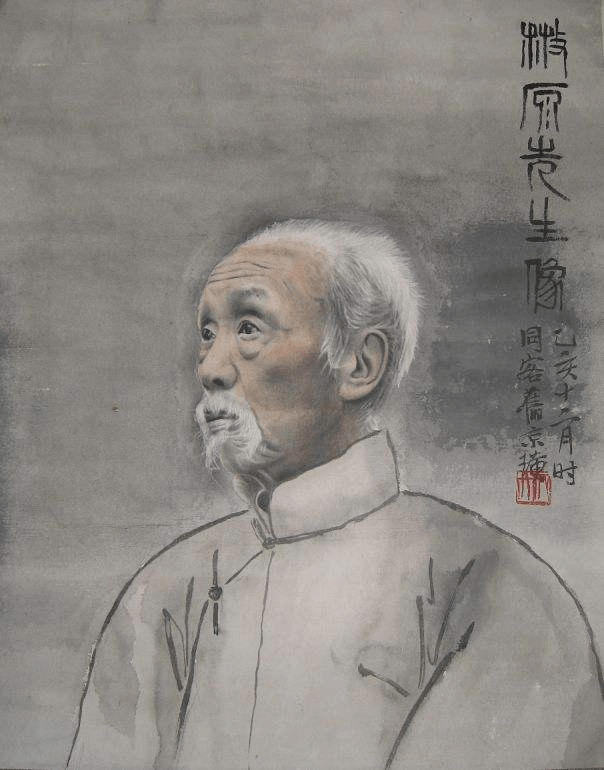 散原先生像
乙亥十二月时
同客舊京璜